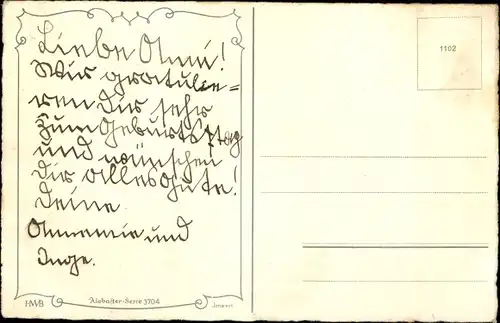 Liebe Anni!
Wir gratulie=
ren Dir sehr
zum Geburtstag
und wünschen
Dir alles Gute!
Deine
Annemie und
Inge.
1102
HWB
Alabaster-Serie 3704